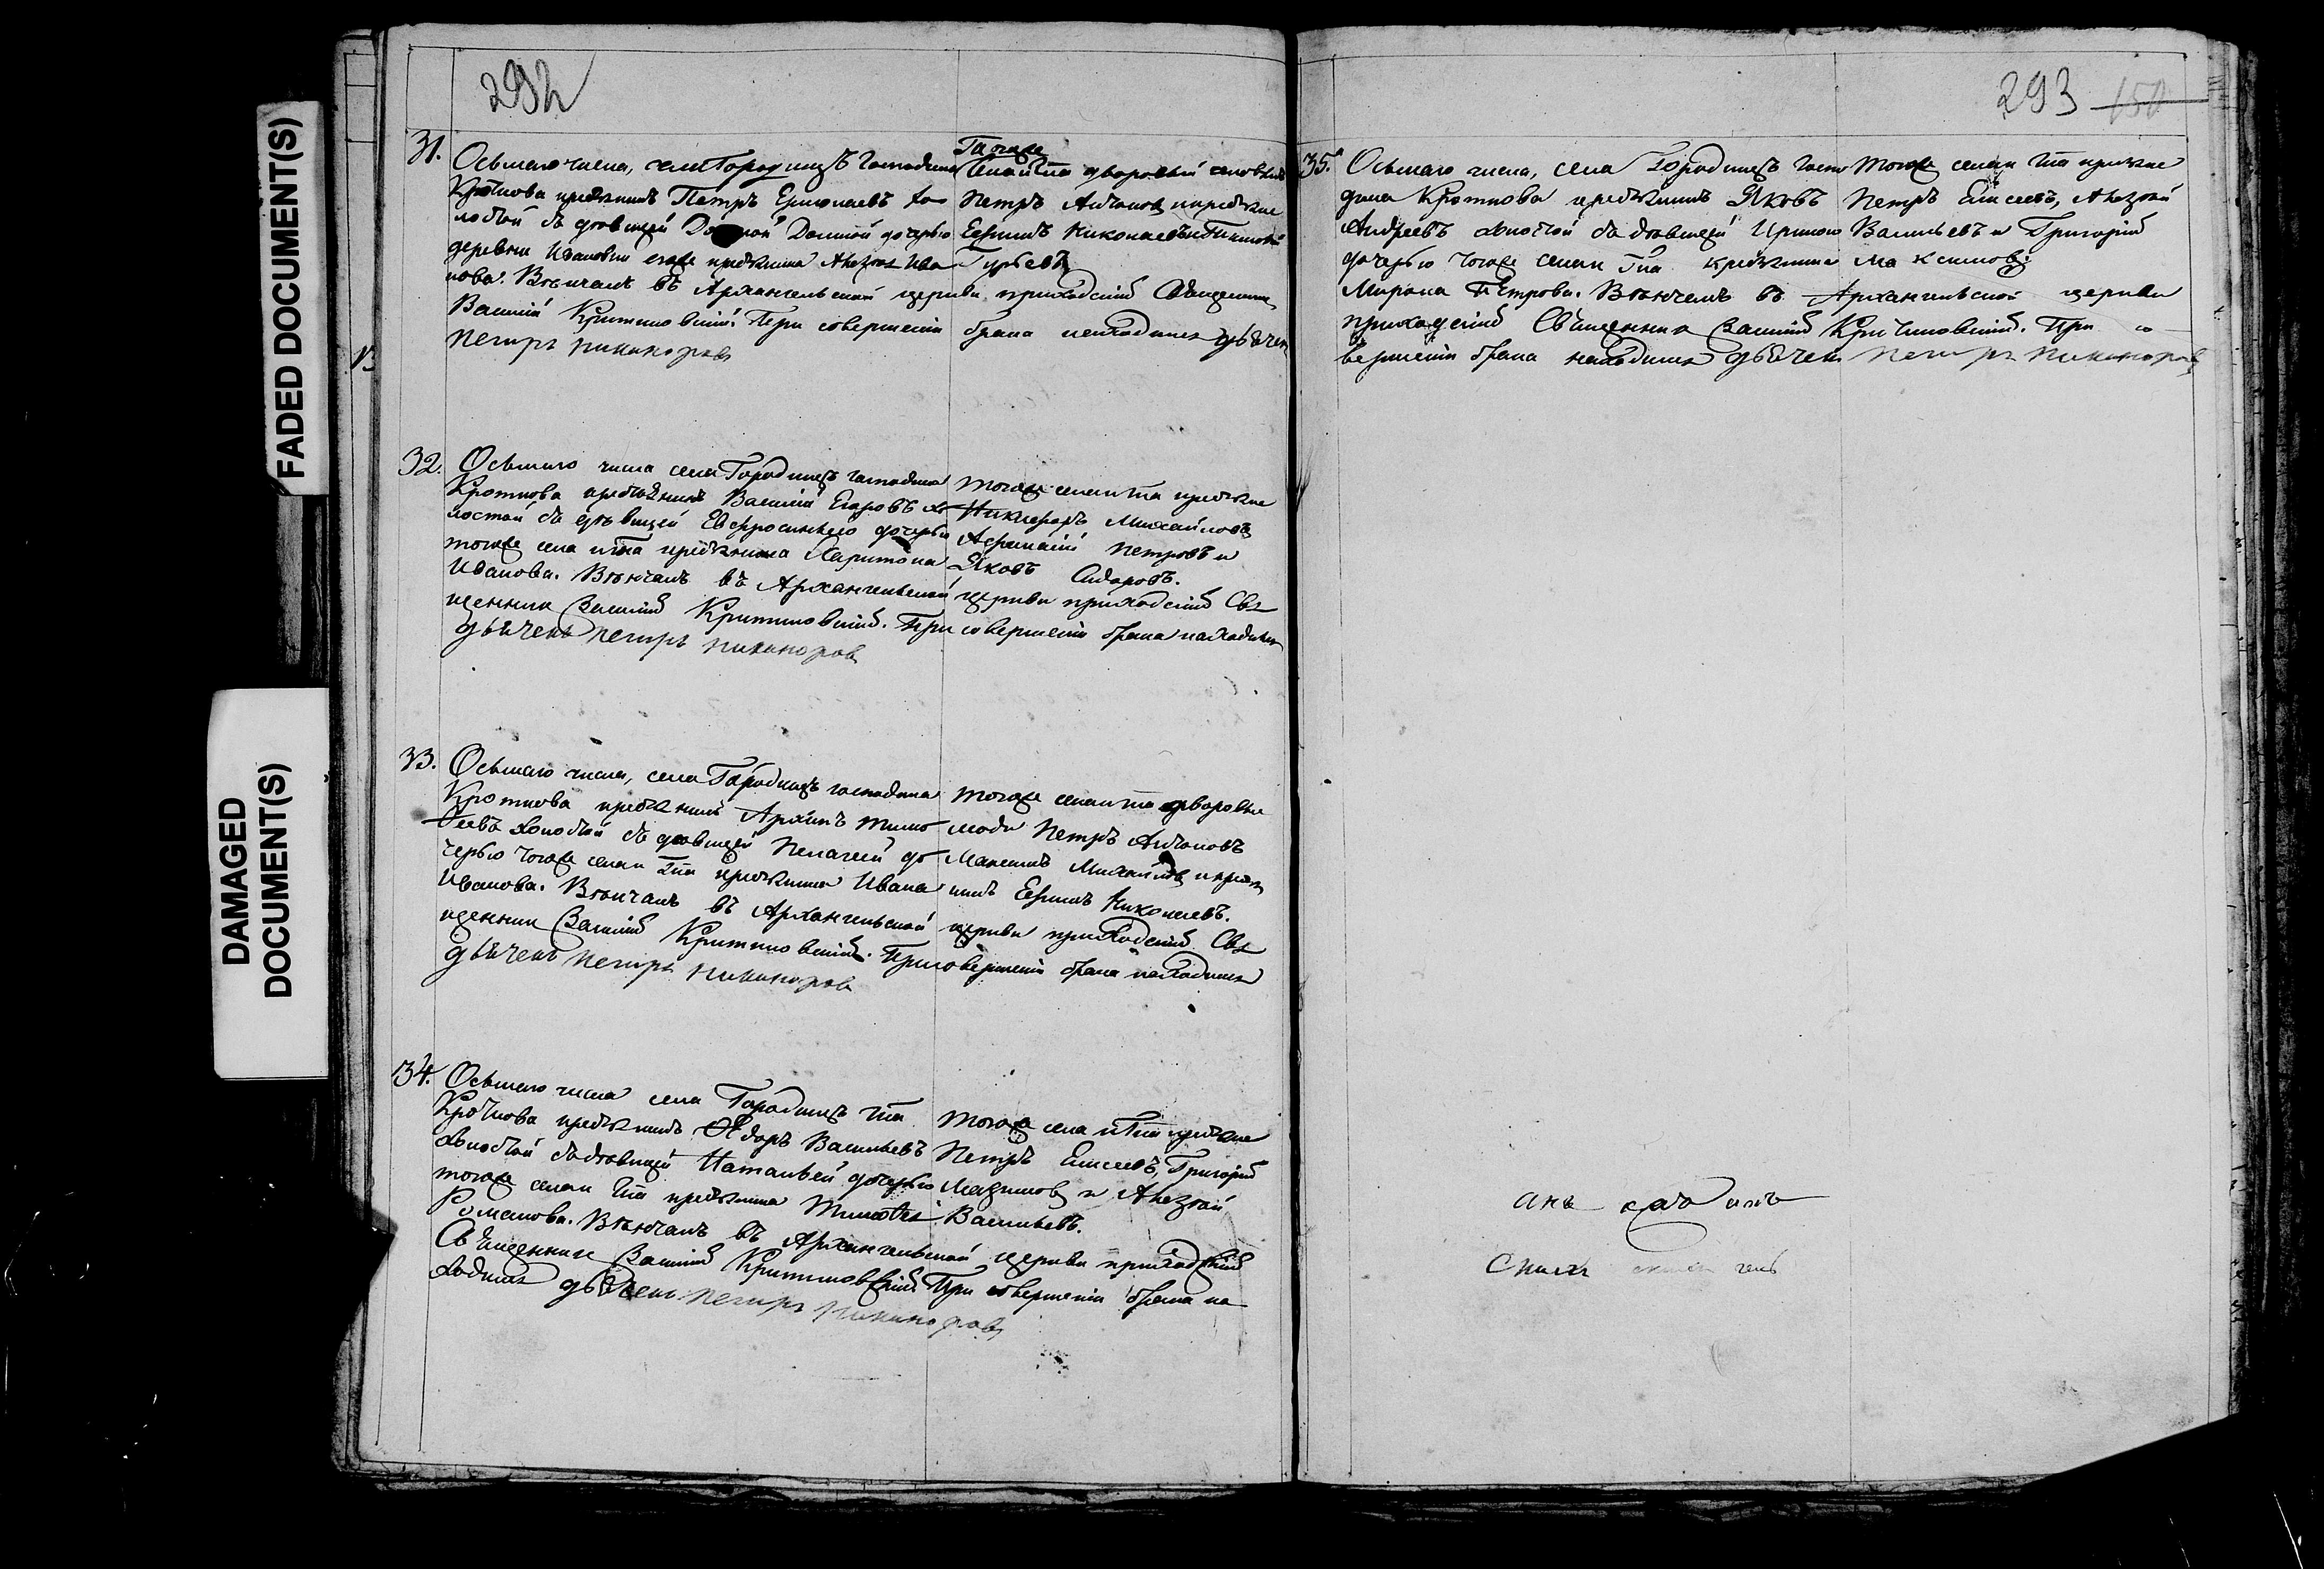 FADED DOCUMENT(S)
DAMAGED
DOCUMENT(S)
292
31.
Осьмаго числа, села Городищъ господина
Кроткова крестьянинъ Петръ Ермолаевъ хо-
лостой съ девицей Домной дочерью
деревни Ивановки егоже крестьянина Алексея Ива
нова. Венчалъ въ Архангельской церкви приходскій Священникъ
Василій Критсковскій. При совершеніи брака находился дьячекъ
петръ никаноровъ
Тогоже
села и Гна дворовый человекъ
Петръ Антоновъ и крестьяне
Ефимъ Николаевъ и
Гурьевъ
32.
Осьмаго числа села Городищъ господина
Кроткова крестьянинъ Василій Егоровъ хо-
лостой съ девицей Евфросиньею дочерью
тогоже села и Гна крестьянина Харитона
Иванова. Венчалъ въ Архангельской церкви приходскій Свя
щенникъ Василій Критсковскій. При совершеніи брака находился
дьячекъ петръ никаноровъ
тогоже села и Гна крестьяне
Никифоръ Михайловъ
Афанасій Петровъ и
Яковъ Сидоровъ.
33.
Осьмаго числа, села Городищъ господина
Кроткова крестьянинъ Архипъ Тимо-
феевъ холостой съ девицей Пелагеей до-
черью тогоже села и Гна крестьянина Ивана
Иванова. Венчалъ въ Архангельской церкви приходскій Свя
щенникъ Василій Критсковскій. При совершеніи брака находился
дьячекъ петръ никаноровъ
тогоже села и Гна дворовые
люди Петръ Антоновъ
Максимъ Михайловъ и кресть
нинъ Ефимъ Николаевъ.
34.
Осьмаго числа села Городищъ Гна
Кроткова крестьянинъ Ѳедоръ Васильевъ
холостой съ девицей Натальей дочерью
тогоже села и Гна крестьянина Тимоѳея
Романова. Венчалъ въ Архангельской церкви приходскій
Священникъ Василій Критсковскій. При совершеніи брака на
ходился дьячекъ петръ никаноровъ
тогоже села и Гна крестьяне
Петръ Елисеевъ, Григорій
Максимовъ и Алексей
Васильевъ.
293 151
35.
Осьмаго числа, села Городищъ госпо
дина Кроткова крестьянинъ Яковъ
Андреевъ холостой съ девицей Ириною
дочерью тогоже села и Гна крестьянина
Мирона Петрова. Венчалъ въ Архангельской церкви
приходскій Священникъ Василій Критсковскій. При со-
вершеніи брака находился дьячекъ петръ никаноровъ
тогоже села и Гна крестьяне
Петръ Елисеевъ, Алексей
Васильевъ и Григорій
Максимовъ.